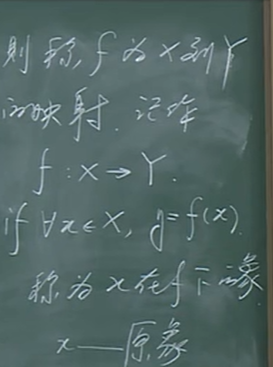 则称f为X到Y
的映射.记作
f:X→Y.
if ∀x∈X, y=f(x).
称为x在f下象
x—原象